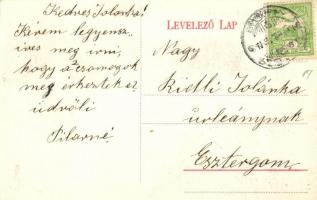 Kedves Jolánka!
Kérem legyen a
írni
hogy a csomagok
meg érkeztek e,
üdvözli
Pilarné.
LEVELEZŐ LAP
Nagy
Rietli Jolánka
urleánynak
Esztergom